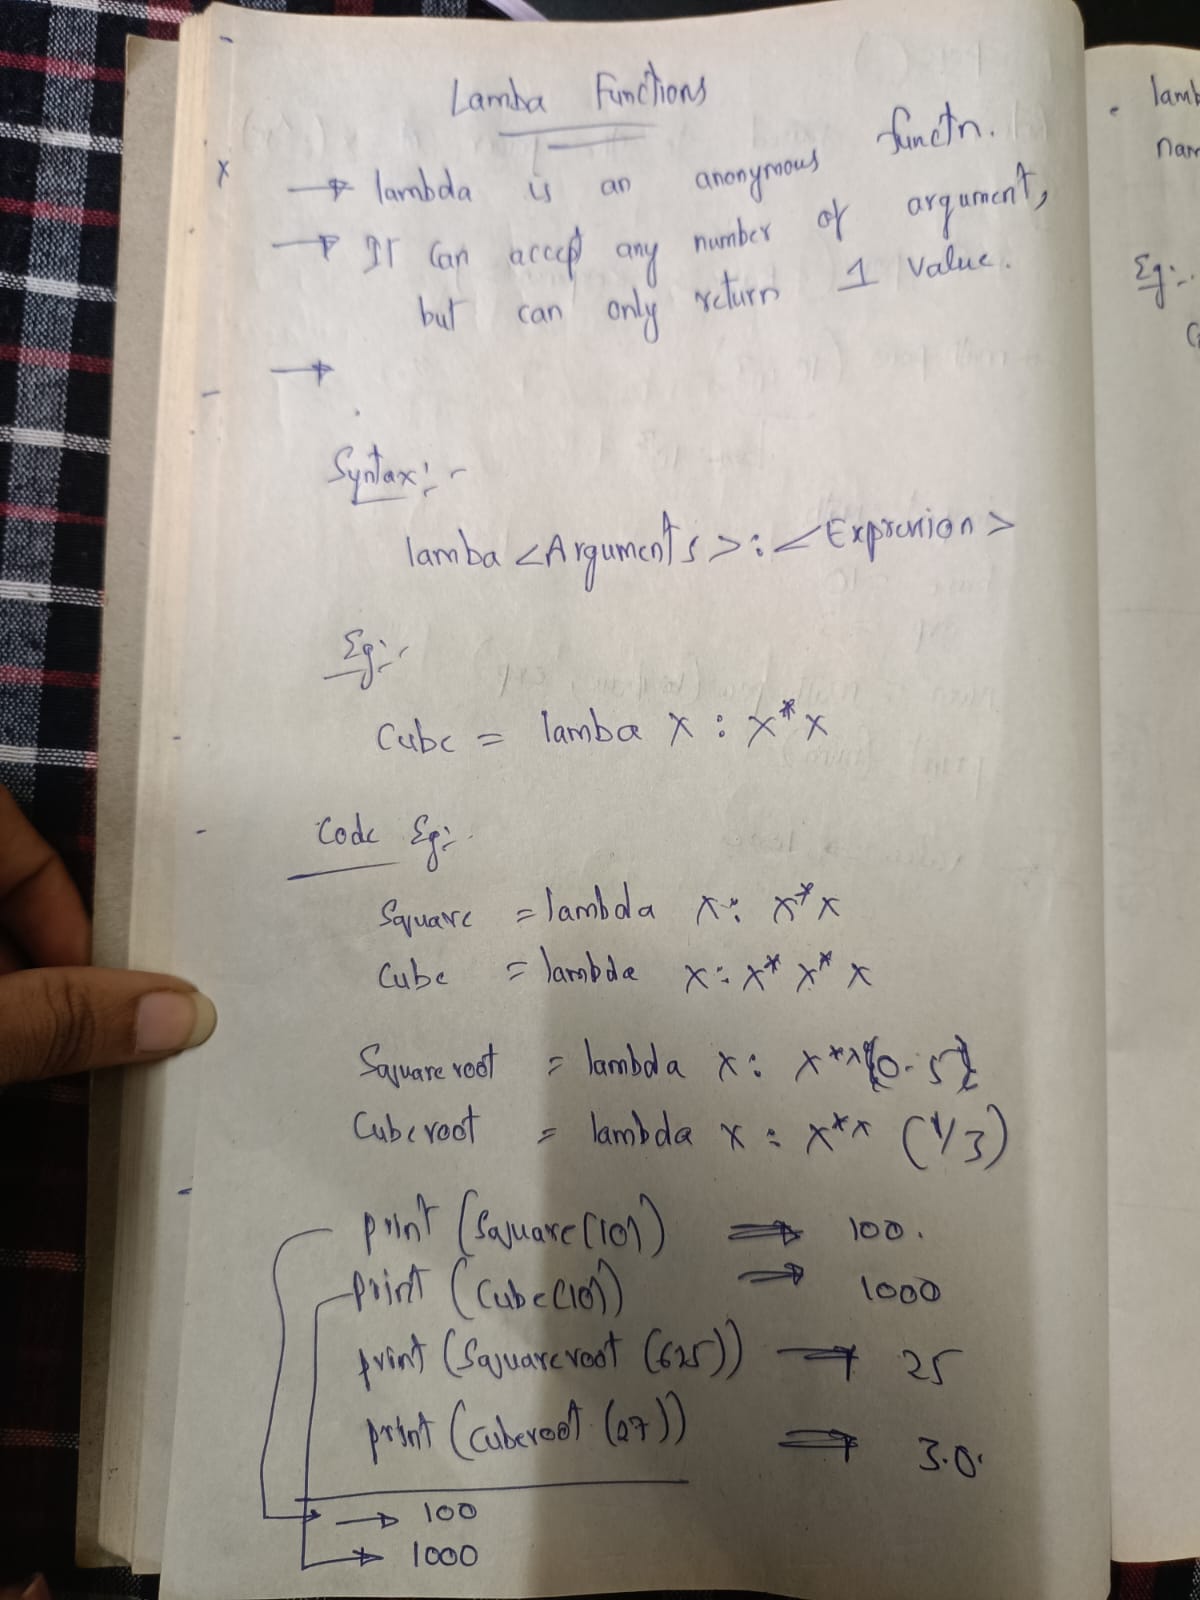 Lamba Functions
→ lambda is an anonymous functn.
→ It can accept any number of argument,
but can only return 1 value.
→
Syntax:-
lamba <Arguments> : <Expression>
Eg:-
Cube = lamba x : x*x
Code Eg:-
Square = lambda x : x*x
Cube = lambda x : x*x*x
Squareroot = lambda x : x**(0.5)
Cuberoot = lambda x : x** (1/3)
print (Square(10)) ⇒ 100.
print (Cube(10)) ⇒ 1000
print (Squareroot (625)) → 25
print (Cuberoot (27)) ⇒ 3.0.
→ 100
→ 1000
lamb
nam
Eg:-